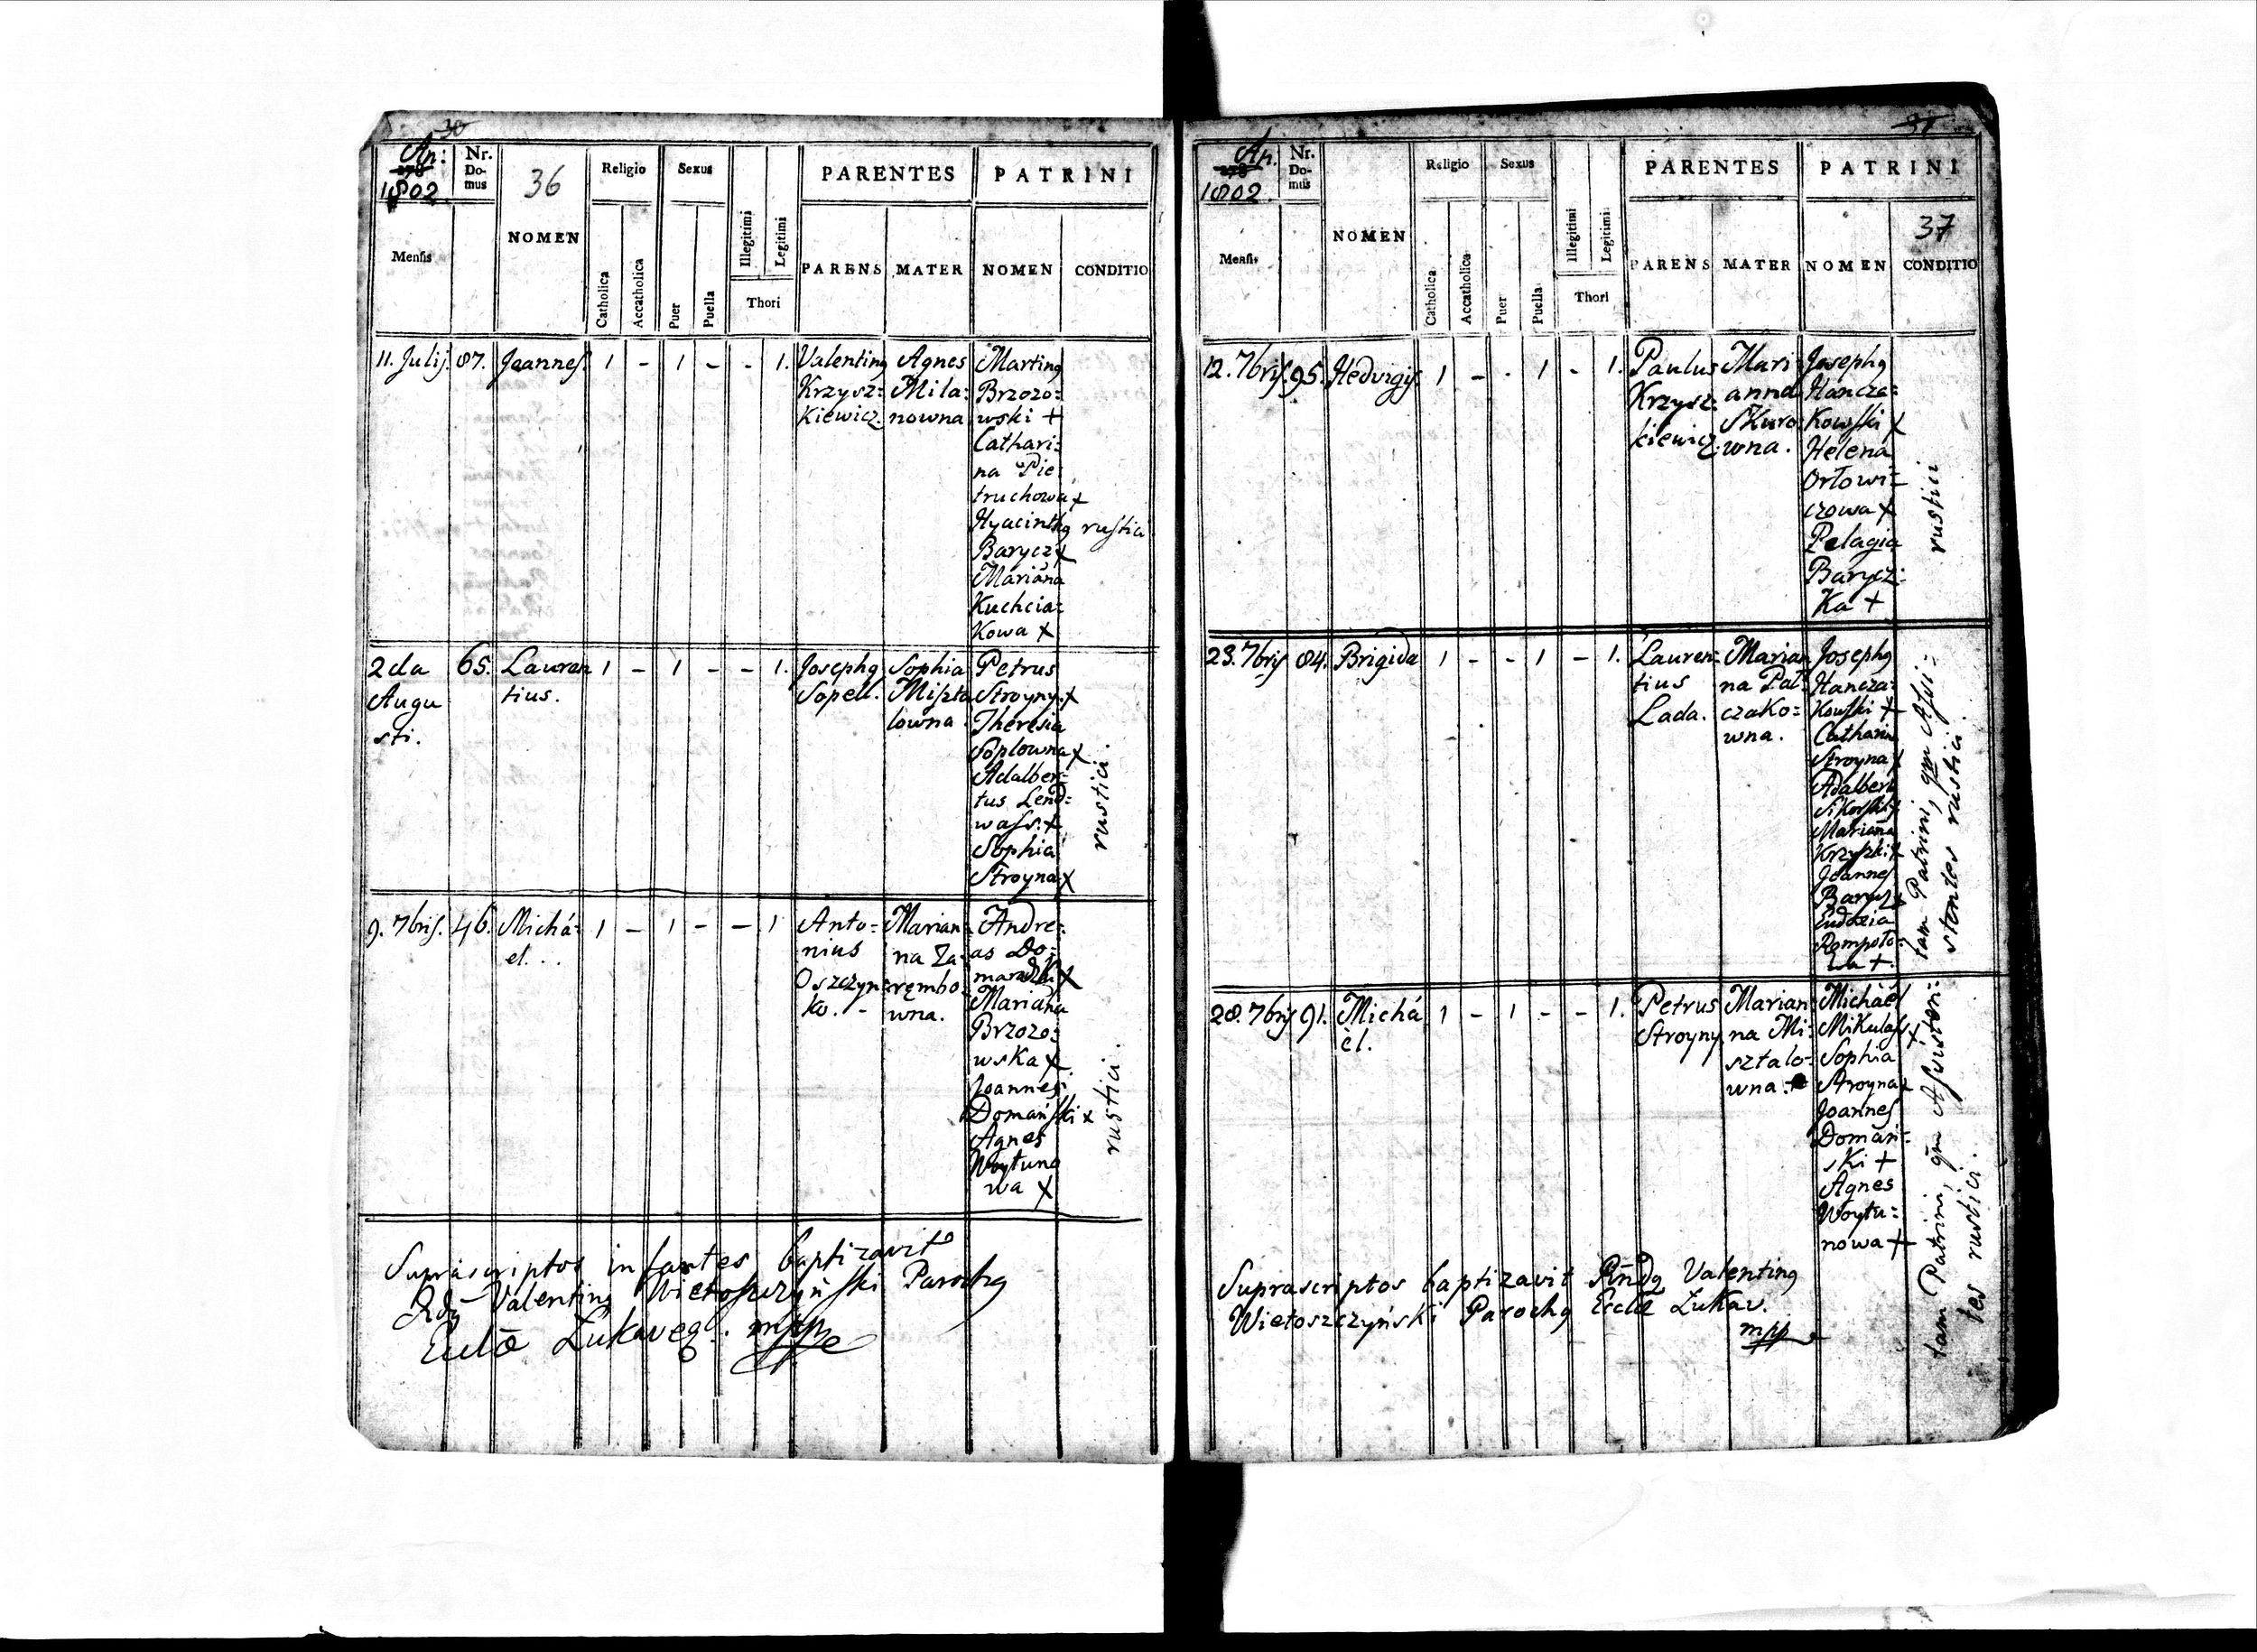 30
An: 178 1802.
Nr. Do- mus
36
NOMEN
Religio
Sexus
PARENTES
PATRINI
Mensis
Catholica
Accatholica
Puer
Puella
Illegitimi
Legitimi
Thori
PARENS
MATER
NOMEN
CONDITIO
11. Julij. 87. Joannes. 1 - 1 - - 1.
Valentinq
Krzysz:
Kiewicz.
Agnes
Mila:
nowna
Martinq
Brzozo:
wski +
Cathari:
na Pie
truchowa +
Hyacinthq
Barycz +
Mariana
Kuchcia:
Kowa +
rustici
2da
Augu
sti.
65.
Lauren
tius.
1 - 1 - - 1.
Josephq
Sopel.
Sophia
Miszta
lowna
Petrus
Stroyny. +
Theresia
Soplowna +
Adalber:
tus Lend:
wass. +
Sophia
Stroyna +
rustici.
9. 7bris. 46.
Michá:
el. . .
1 - 1 - - 1
Anto:
nius
Oszczyp:
ko. -
Marian:
na Za:
rembo:
wna.
Andre:
as Do:
maradzki +
Mariana
Brzozo:
wska +
Joannes
Domański +
Agnes
Woytuno
wa +
rustici.
Supráscriptos infantes baptizavit
Rdq Valentinq Wietoszczyński Parochq
Eccla Lukaveq. mpp
31
An. 178 1802.
Nr. Do- mus
NOMEN
Religio
Sexus
PARENTES
PATRINI
37
Mensis
Catholica
Accatholica
Puer
Puella
Illegitimi
Legitimi
Thori
PARENS
MATER
NOMEN
CONDITIO
12. 7bris. 95. Hedvigis. 1 - - 1 - 1.
Paulus
Krzysz:
kiewicz.
Mari
anna
Skuro
wna.
Josephq
Hancza:
Kowski +
Helena
Orłowi:
czowa +
Pelagia
Barycz:
Ka +
rustici
23. 7bris 84. Brigida 1 - - 1 - 1.
Lauren:
tius
Lada.
Marian
na Pal:
czako:
wna.
Josephq
Hancza:
Kowski +
Catharin
Stroyna +
Adalbert
Sikorski +
Mariana
Krzyszki +
Joannes
Barycz +
Eudoxia
Rompoło:
wa +.
tam Patrini, qm Assi:
stentes rustici.
28. 7bris 91.
Michá
èl.
1 - 1 - - 1.
Petrus
Stroyny
Marian
na Mi:
sztalo:
wna.
Michaël
Mikulass +
Sophia
Stroyna +
Joannes
Doman:
ski +
Agnes
Woytu:
nowa +
tam Patrini, qm Assisten:
tes rustici.
Suprascriptos baptizavit Rndq Valentinq
Wietoszczyński Parochq Eccla Lukav.
mpp